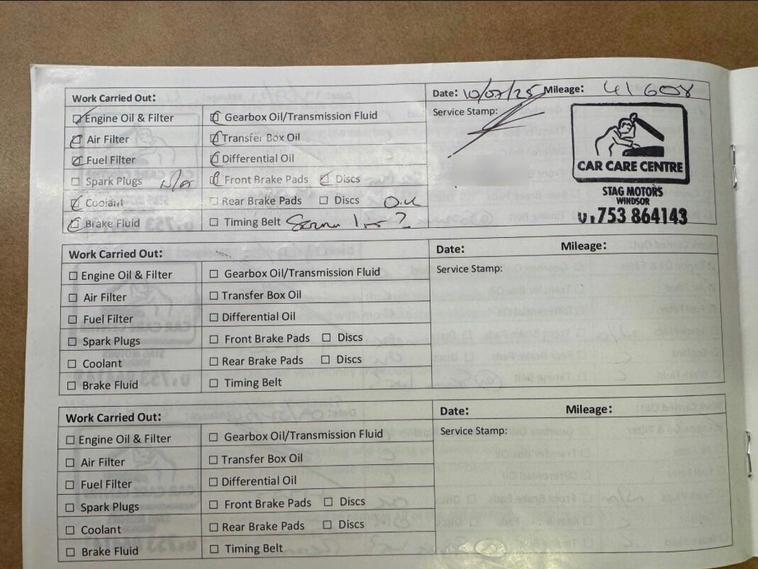 Work Carried Out: Date: 10/07/25 Mileage: 41608
☑ Engine Oil & Filter ☑ Gearbox Oil/Transmission Fluid Service Stamp:
☑ Air Filter ☑ Transfer Box Oil
☑ Fuel Filter ☑ Differential Oil
☐ Spark Plugs N/A ☑ Front Brake Pads ☑ Discs
☑ Coolant ☐ Rear Brake Pads ☐ Discs O.K
☑ Brake Fluid ☐ Timing Belt
CAR CARE CENTRE
STAG MOTORS
WINDSOR
01753 864143
Work Carried Out: Date: Mileage:
☐ Engine Oil & Filter ☐ Gearbox Oil/Transmission Fluid Service Stamp:
☐ Air Filter ☐ Transfer Box Oil
☐ Fuel Filter ☐ Differential Oil
☐ Spark Plugs ☐ Front Brake Pads ☐ Discs
☐ Coolant ☐ Rear Brake Pads ☐ Discs
☐ Brake Fluid ☐ Timing Belt
Work Carried Out: Date: Mileage:
☐ Engine Oil & Filter ☐ Gearbox Oil/Transmission Fluid Service Stamp:
☐ Air Filter ☐ Transfer Box Oil
☐ Fuel Filter ☐ Differential Oil
☐ Spark Plugs ☐ Front Brake Pads ☐ Discs
☐ Coolant ☐ Rear Brake Pads ☐ Discs
☐ Brake Fluid ☐ Timing Belt